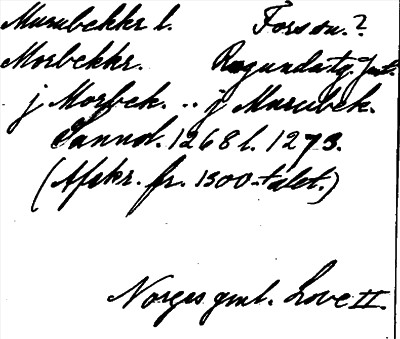 Murubekkr l. Forsön.?
Morbekkr. Ragundatg. Jmt.
j Morbek. .. j Murubek.
Sannol. 1268 l. 1273.
(Afskr. fr. 1300-talet.)
Norges gml. Love II.